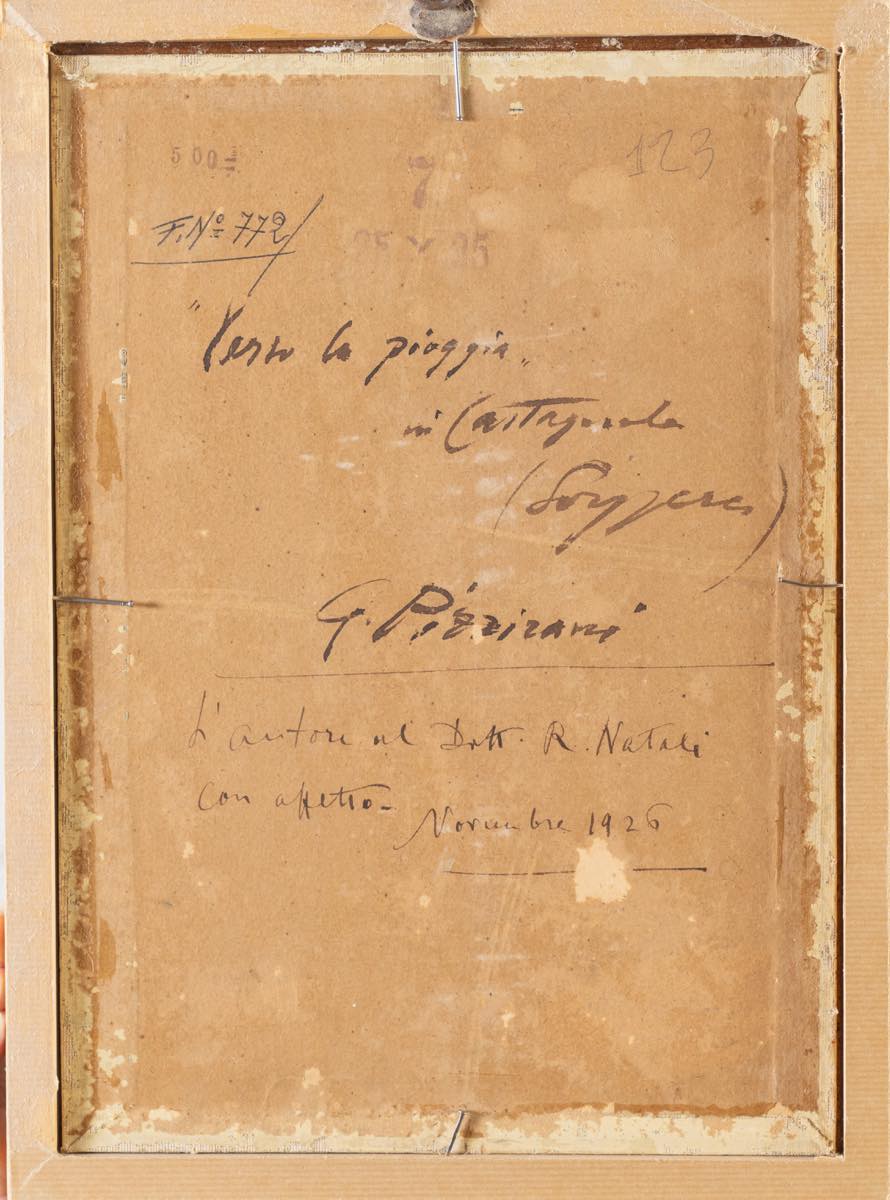 500=
123
7
F. Nº 772/
"Verso la pioggia"
in Castagnola
(Svizzera)
G. Pizzirani
L'autore al Dott. R. Natali
con affetto-
Novembre 1926